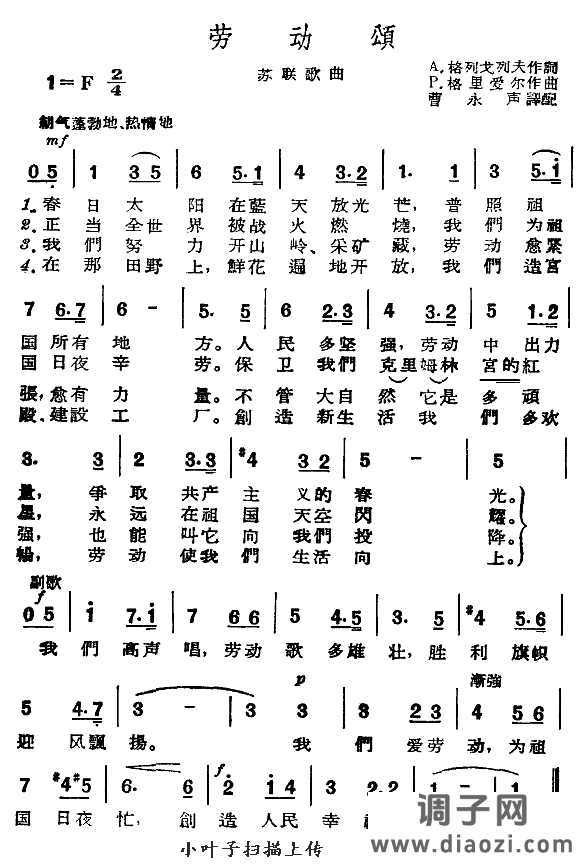 劳动頌
苏联歌曲
A.格列戈列夫作詞
P.格里爱尔作曲
曹永声譯配
1=F 2/4
朝气蓬勃地、热情地
mf
0 5 | 1 3 5 | 6 5·1 | 4 3·2 | 1· 1 | 3 5·i
1.春日太阳在藍天放光芒，普照祖
2.正当全世界被战火燃燒，我們为祖
3.我們努力开山岭、采矿藏，劳动愈紧
4.在那田野上，鮮花遍地开放，我們造宮
7 6·7 | 6 - | 5· 5 | 6 2·3 | 4 3·2 | 5 1·2
国所有地方。人民多坚强，劳动中出力
国日夜辛劳。保卫我們克里姆林宮的紅
張，愈有力量。不管大自然它是多頑
殿、建設工厂。創造新生活我們多欢
3· 3 | 2 3·3 | #4 3 2 | 5 - | 5
量，爭取共产主义的春光。
星，永远在祖国天空閃耀。
强，也能叫它向我們投降。
暢，劳动使我們生活向上。
副歌
f
0 5 | i 7·i | 7 6 6 | 5 4·5 | 3· 3 | #4 5·6
我們高声唱，劳动歌多雄壮，胜利旗帜
p 漸強
5 4·7 | 3 - | 3 3 | 3 3 | 8 2 3 | 4 5·6
迎风飄揚。我們爱劳动，为祖
f
7 #4#5 | 6· 6 | 2 i 4 | 3 2·2 | i - | i
国日夜忙，創造人民幸
小叶子扫描上传
调子网
www.diaozi.com